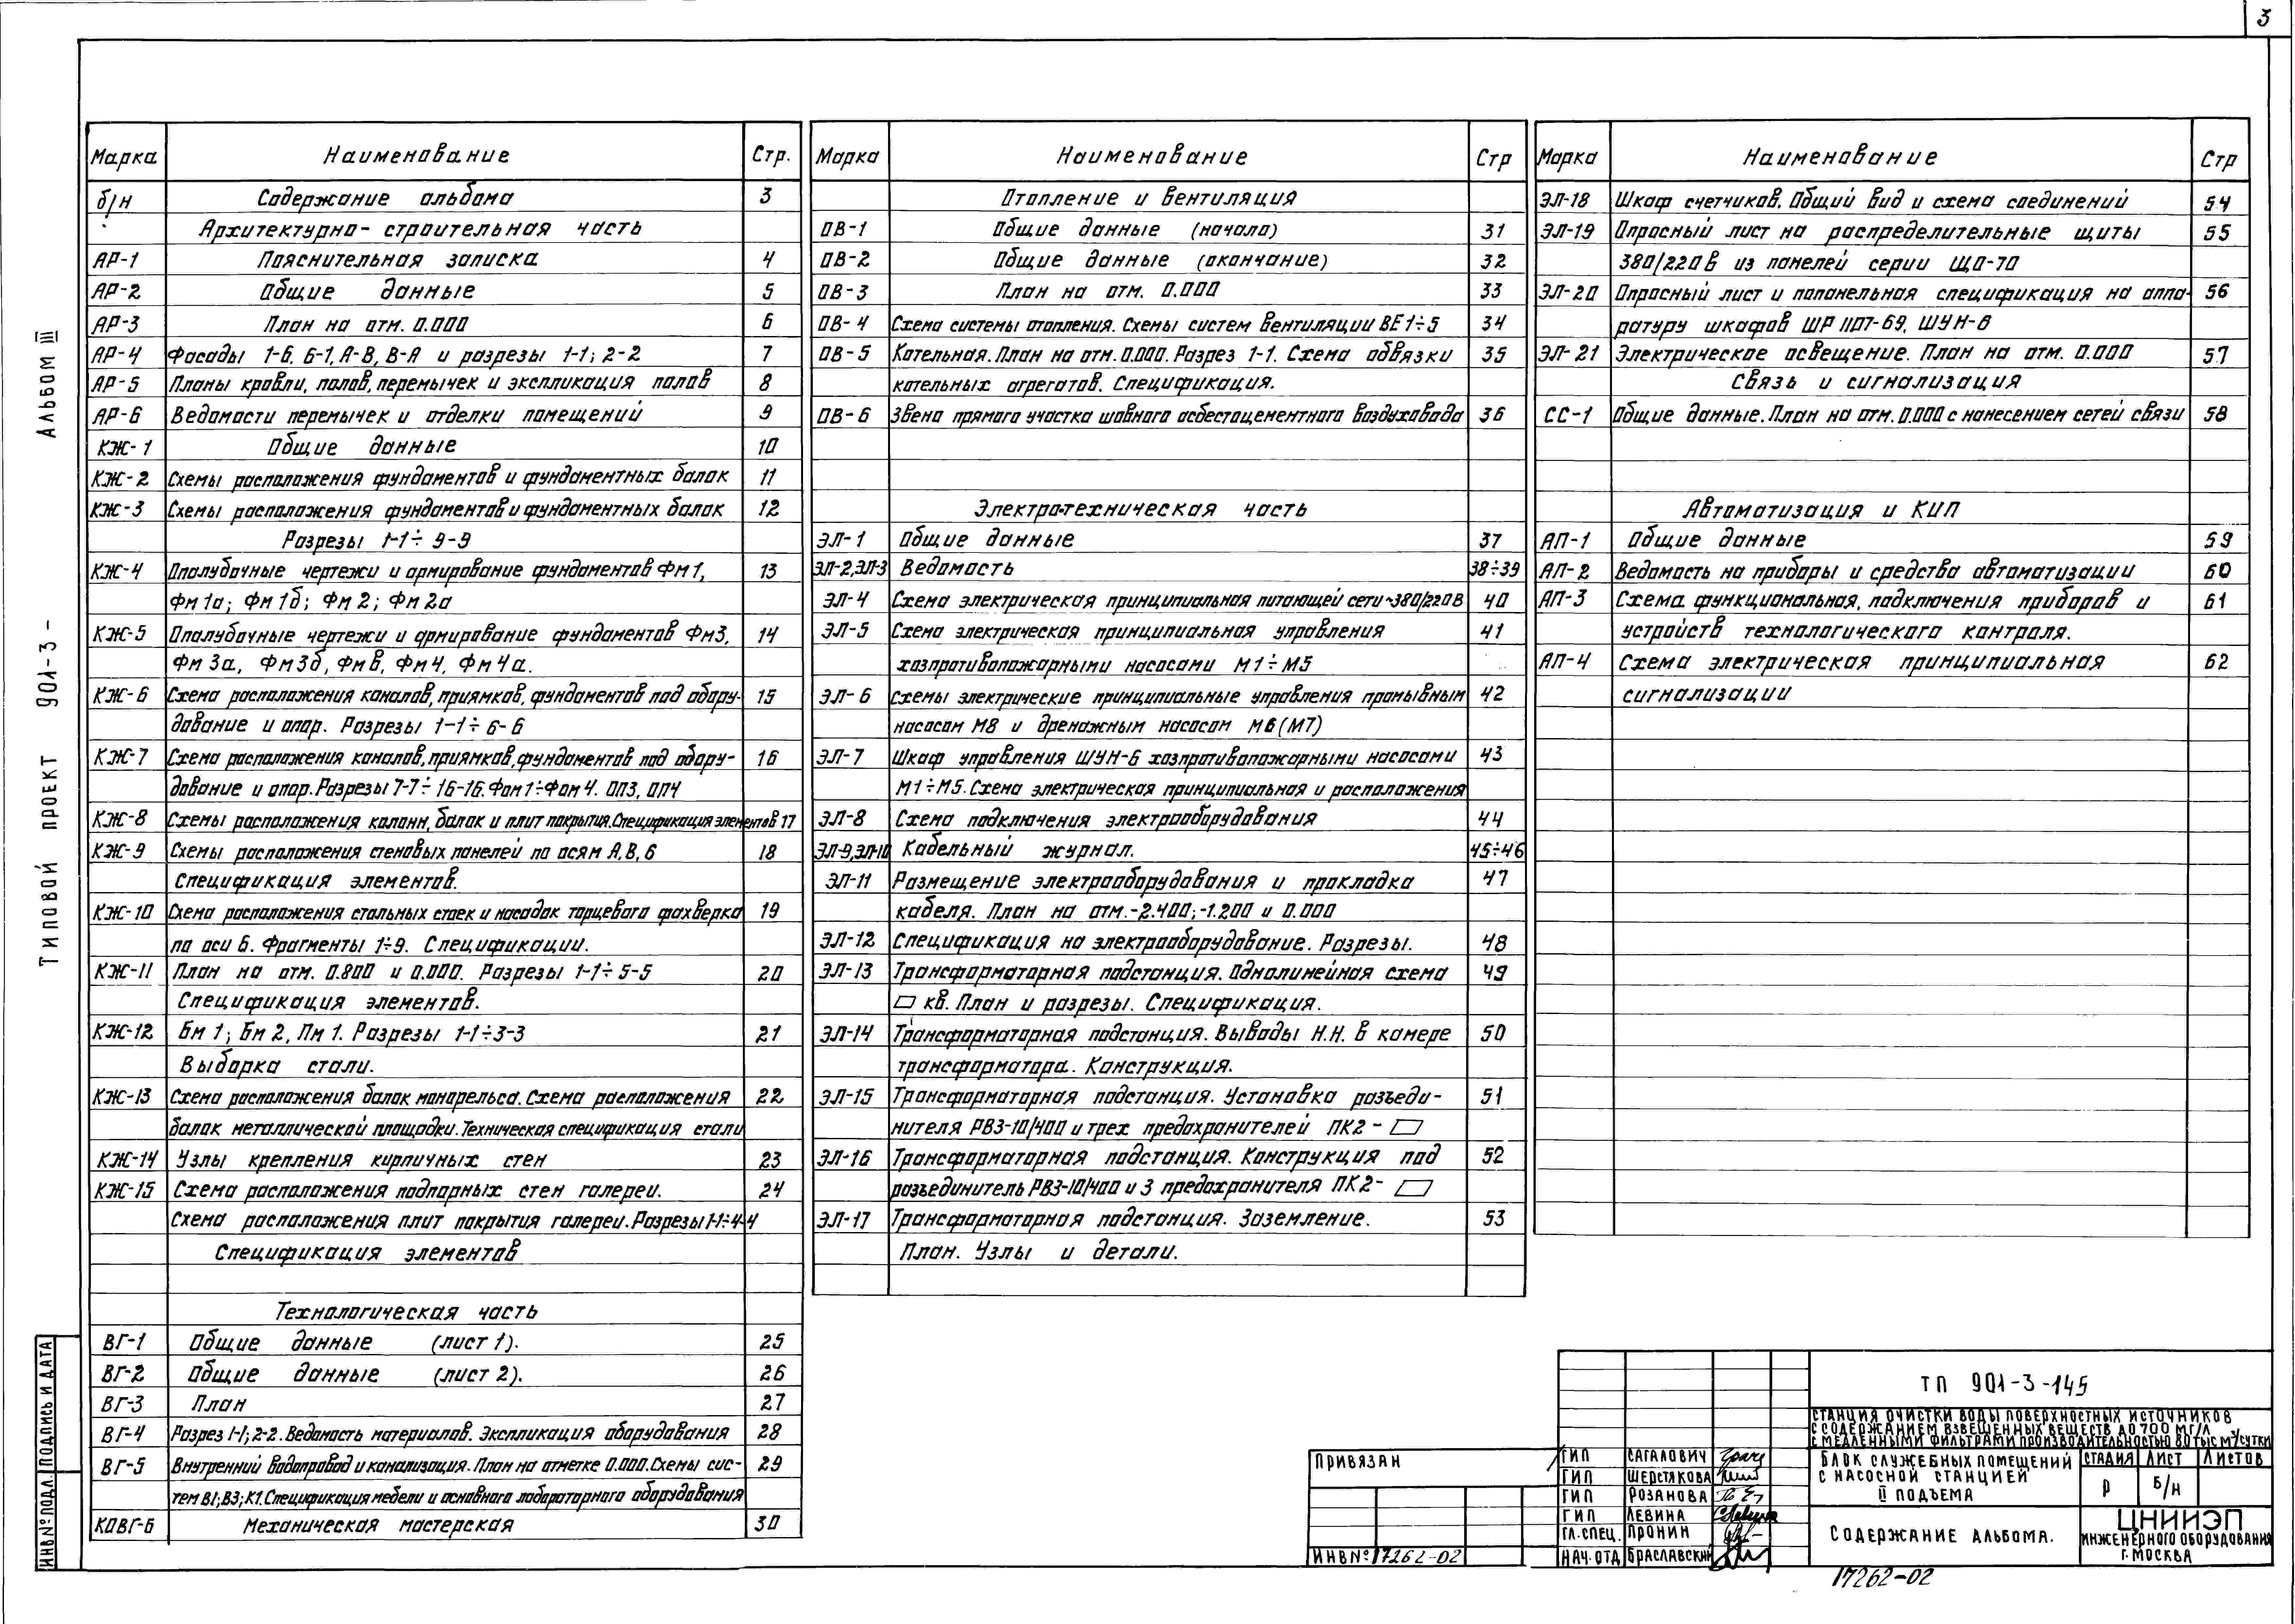 3
Альбом III
Типовой проект 901-3-
Марка Наименование Стр.
б/н Содержание альбома 3
Архитектурно-строительная часть
АР-1 Пояснительная записка 4
АР-2 Общие данные 5
АР-3 План на отм. 0.000 6
АР-4 Фасады 1-6, 6-1, А-В, В-А и разрезы 1-1; 2-2 7
АР-5 Планы кровли, полов, перемычек и экспликация полов 8
АР-6 Ведомости перемычек и отделки помещений 9
КЖ-1 Общие данные 10
КЖ-2 Схемы расположения фундаментов и фундаментных балок 11
КЖ-3 Схемы расположения фундаментов и фундаментных балок 12
Разрезы 1-1÷9-9
КЖ-4 Опалубочные чертежи и армирование фундаментов Фм1, 13
Фм1а; Фм1б; Фм2; Фм2а
КЖ-5 Опалубочные чертежи и армирование фундаментов Фм3, 14
Фм3а, Фм3б, Фмв, Фм4, Фм4а.
КЖ-6 Схема расположения каналов, приямков, фундаментов под обору- 15
дование и опор. Разрезы 1-1÷6-6
КЖ-7 Схема расположения каналов, приямков, фундаментов под обору- 16
дование и опор. Разрезы 7-7÷16-16. Фом1÷Фом4. ОП3, ОП4
КЖ-8 Схемы расположения колонн, балок и плит покрытия. Спецификация элементов 17
КЖ-9 Схемы расположения стеновых панелей по осям А, В, 6 18
Спецификация элементов.
КЖ-10 Схема расположения стальных стоек и насадок торцевого фахверка 19
по оси 6. Фрагменты 1÷9. Спецификации.
КЖ-11 План на отм. 0.800 и 0.000. Разрезы 1-1÷5-5 20
Спецификация элементов.
КЖ-12 Бм 1; Бм 2, Пм 1. Разрезы 1-1÷3-3 21
Выборка стали.
КЖ-13 Схема расположения балок монорельса. Схема расположения 22
балок металлической площадки. Техническая спецификация стали
КЖ-14 Узлы крепления кирпичных стен 23
КЖ-15 Схема расположения подпорных стен галереи. 24
Схема расположения плит покрытия галереи. Разрезы 1-1÷4-4
Спецификация элементов
Технологическая часть
ВГ-1 Общие данные (лист 1). 25
ВГ-2 Общие данные (лист 2). 26
ВГ-3 План 27
ВГ-4 Разрез 1-1; 2-2. Ведомость материалов. Экспликация оборудования 28
ВГ-5 Внутренний водопровод и канализация. План на отметке 0.000. Схемы сис- 29
тем В1; В3; К1. Спецификация мебели и основного лабораторного оборудования
КОВГ-6 Механическая мастерская 30
Марка Наименование Стр
Отопление и вентиляция
ОВ-1 Общие данные (начало) 31
ОВ-2 Общие данные (окончание) 32
ОВ-3 План на отм. 0.000 33
ОВ-4 Схема системы отопления. Схемы систем вентиляции ВЕ1÷5 34
ОВ-5 Котельная. План на отм. 0.000. Разрез 1-1. Схема обвязки 35
котельных агрегатов. Спецификация.
ОВ-6 Звена прямого участка шовного асбестоцементного воздуховода 36
Электротехническая часть
ЭЛ-1 Общие данные 37
ЭЛ-2, ЭЛ-3 Ведомость 38÷39
ЭЛ-4 Схема электрическая принципиальная питающей сети ~380/220В 40
ЭЛ-5 Схема электрическая принципиальная управления 41
хозпротивопожарными насосами М1÷М5
ЭЛ-6 Схемы электрические принципиальные управления промывным 42
насосом М8 и дренажным насосом М6(М7)
ЭЛ-7 Шкаф управления ШУН-6 хозпротивопожарными насосами 43
М1÷М5. Схема электрическая принципиальная и расположения
ЭЛ-8 Схема подключения электрооборудования 44
ЭЛ-9, ЭЛ-10 Кабельный журнал. 45÷46
ЭЛ-11 Размещение электрооборудования и прокладка 47
кабеля. План на отм. -2.400; -1.200 и 0.000
ЭЛ-12 Спецификация на электрооборудование. Разрезы. 48
ЭЛ-13 Трансформаторная подстанция. Однолинейная схема 49
▱ кв. План и разрезы. Спецификация.
ЭЛ-14 Трансформаторная подстанция. Выводы Н.Н. в камере 50
трансформатора. Конструкция.
ЭЛ-15 Трансформаторная подстанция. Установка разъеди- 51
нителя РВЗ-10/400 и трех предохранителей ПК2-▱
ЭЛ-16 Трансформаторная подстанция. Конструкция под 52
разъединитель РВЗ-10/400 и 3 предохранителя ПК2-▱
ЭЛ-17 Трансформаторная подстанция. Заземление. 53
План. Узлы и детали.
Марка Наименование Стр
ЭЛ-18 Шкаф счетчиков. Общий вид и схема соединений 54
ЭЛ-19 Опросный лист на распределительные щиты 55
380/220В из панелей серии ЩО-70
ЭЛ-20 Опросный лист и попанельная спецификация на аппа- 56
ратуру шкафов ШР 1107-69, ШУН-6
ЭЛ-21 Электрическое освещение. План на отм. 0.000 57
Связь и сигнализация
СС-1 Общие данные. План на отм. 0.000 с нанесением сетей связи 58
Автоматизация и КИП
АП-1 Общие данные 59
АП-2 Ведомость на приборы и средства автоматизации 60
АП-3 Схема функциональная, подключения приборов и 61
устройств технологического контроля.
АП-4 Схема электрическая принципиальная 62
сигнализации
Инв№подл. Подпись и дата
Привязан
Инв№ 17262-02
ГИП Сагалович
ГИП Шерстякова
ГИП Розанова
ГИП Левина
Гл.спец. Пронин
Нач.отд Браславский
ТП 901-3-145
Станция очистки воды поверхностных источников
с содержанием взвешенных веществ до 700 мг/л
с медленными фильтрами производительностью 8.0 тыс м³/сутки
Блок служебных помещений
с насосной станцией
II подъема
Стадия Лист Листов
Р б/н
Содержание альбома.
ЦНИИЭП
инженерного оборудования
г. Москва
17262-02